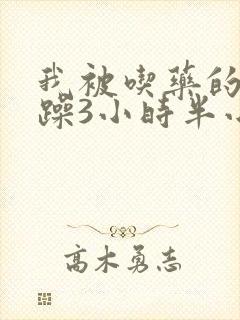 我被喫藥的
躁3小時半小
高木勇志